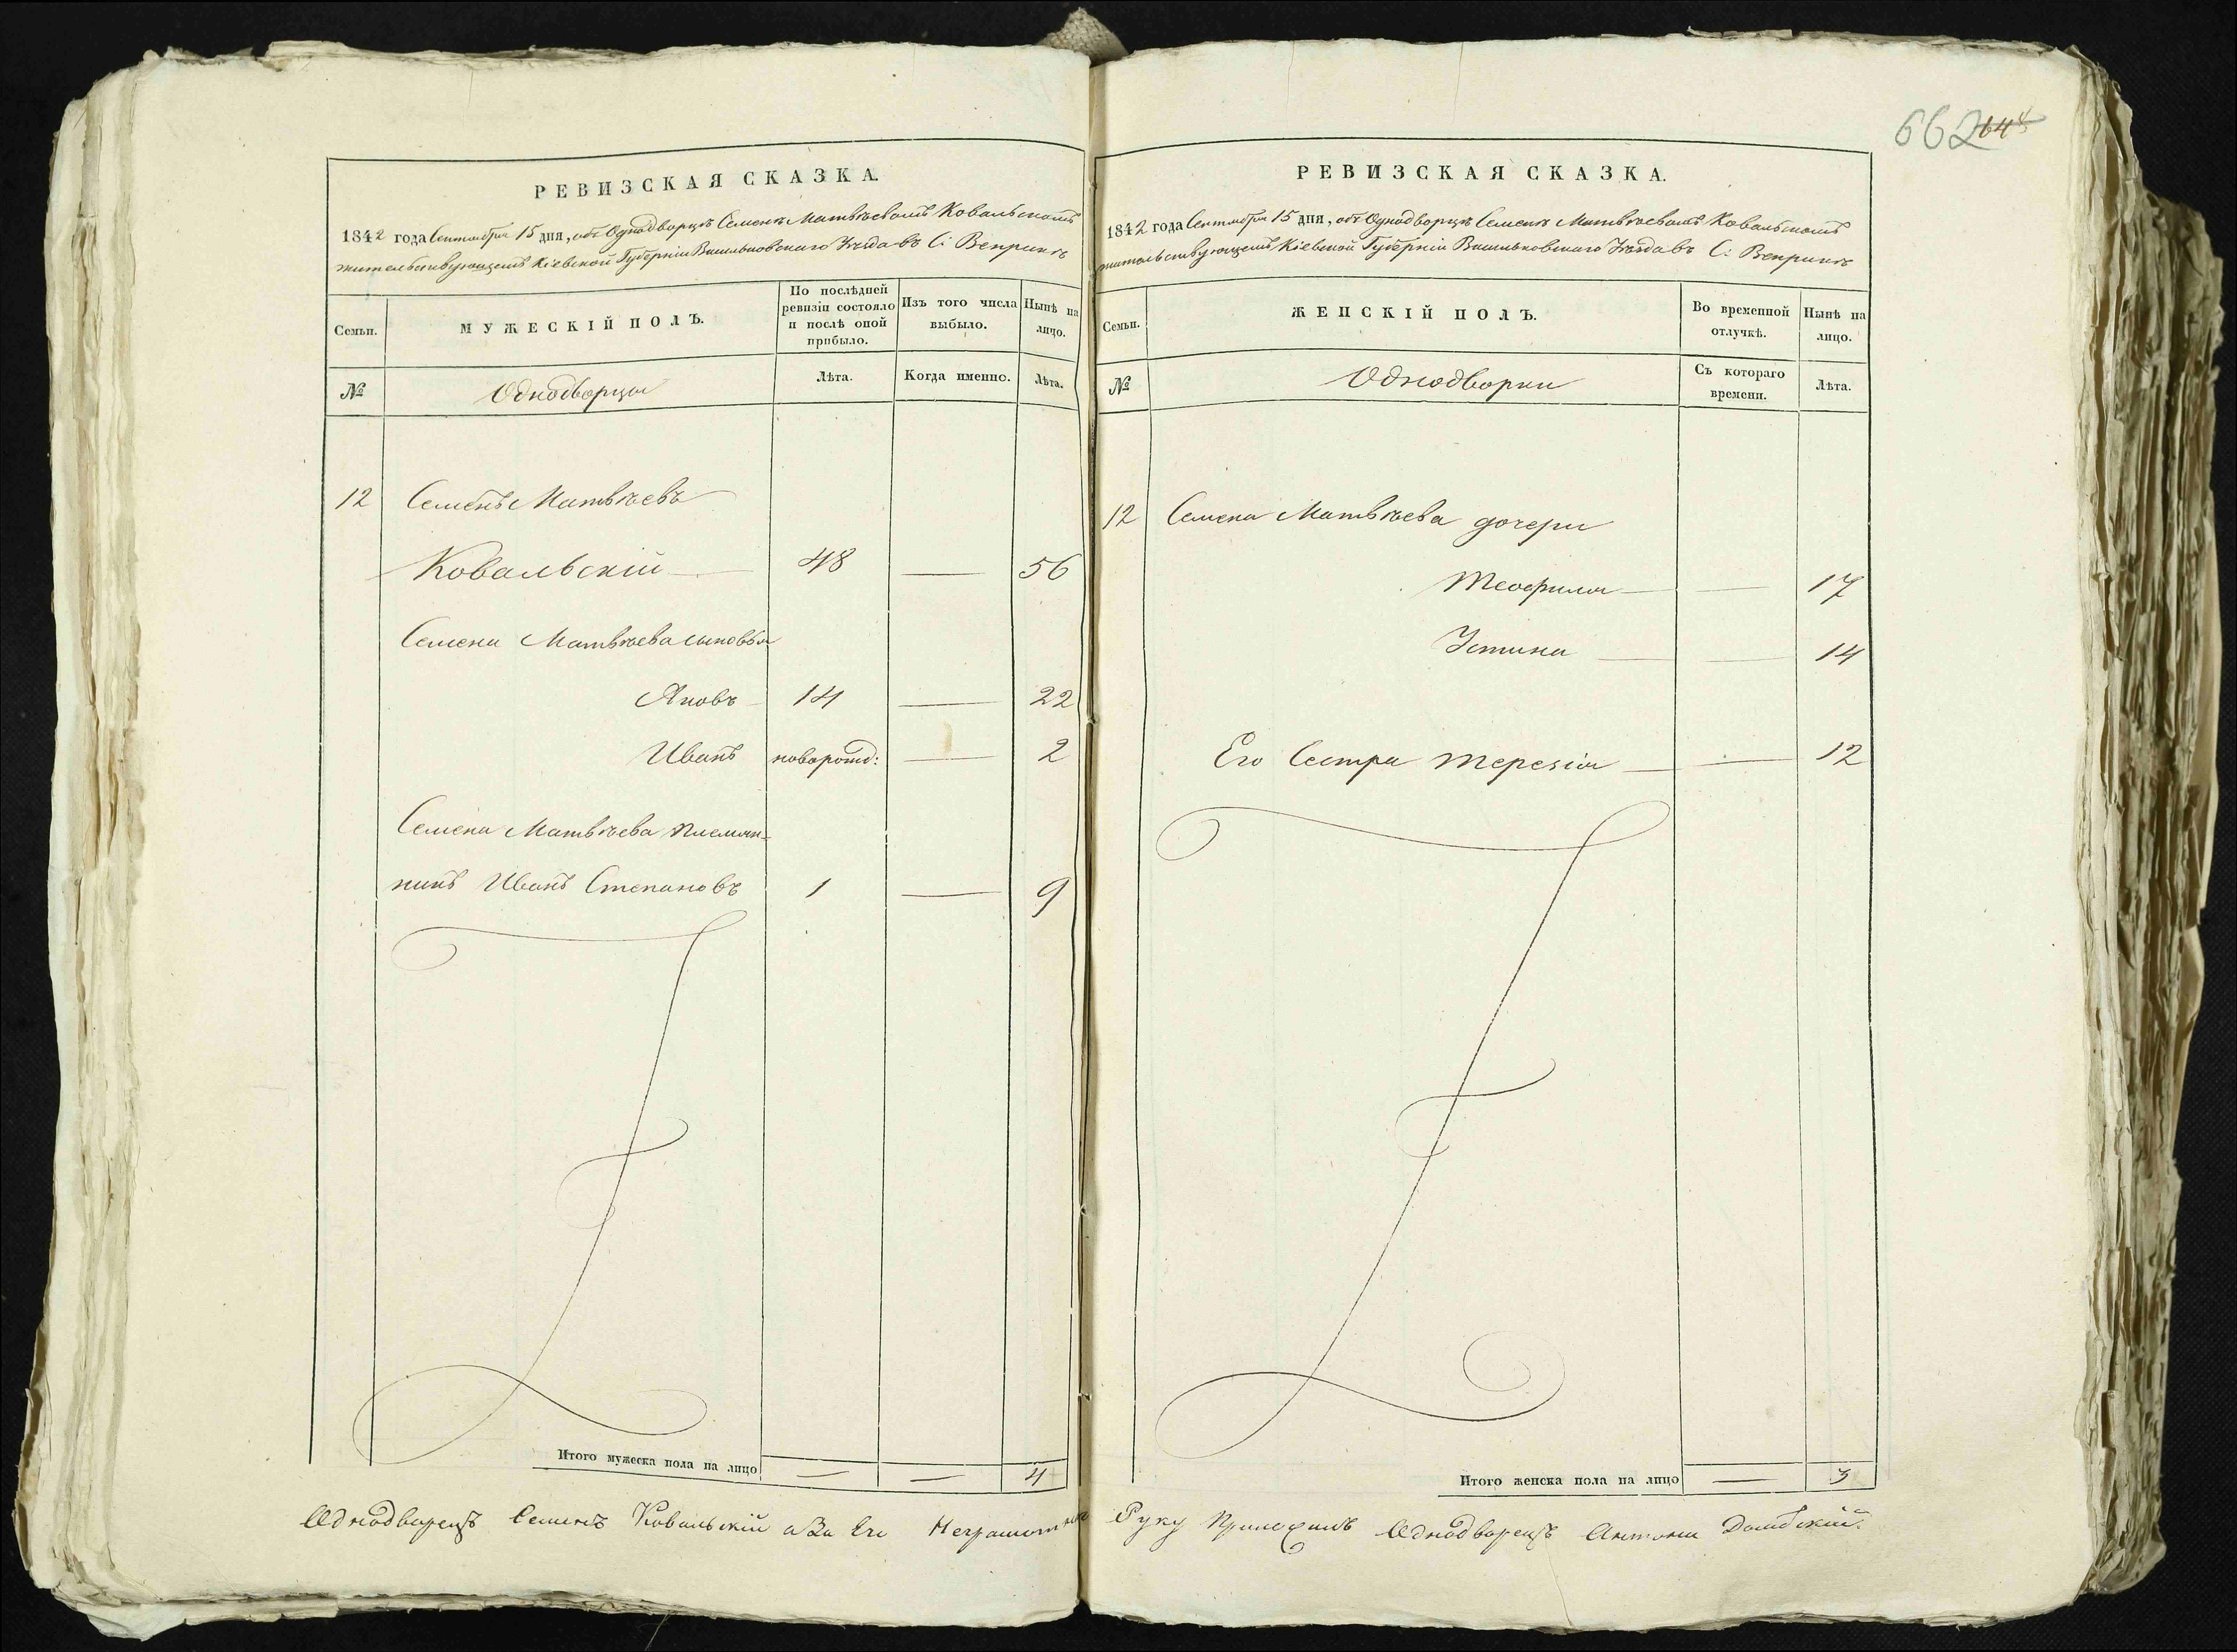 РЕВИЗСКАЯ СКАЗКА.
1842 года Сентября 15 дня, объ Однодворцѣ Семенѣ Матвѣевомъ Ковальскомъ
жительствующемъ Кіевской Губерніи Васильковскаго Уѣзда въ С: Веприкѣ
Семьи.
МУЖЕСКІЙ ПОЛЪ.
По послѣдней
ревизіи состояло
и послѣ оной
прибыло.
Изъ того числа
выбыло.
Нынѣ на
лицо.
№
Однодворцы
Лѣта.
Когда именно.
Лѣта.
12 Семенъ Матвѣевъ
Ковальскій 48 — 56
Семена Матвѣева сыновья
Яковъ 14 — 22
Иванъ новорожд: — 2
Семена Матвѣева племян-
никъ Иванъ Степановъ 1 — 9
Итого мужеска пола на лицо — — 4
Однодворецъ Семенъ Ковальскій а За Его
662 644
РЕВИЗСКАЯ СКАЗКА.
1842 года Сентября 15 дня, объ Однодворцѣ Семенѣ Матвѣевомъ Ковальскомъ
жительствующемъ Кіевской Губерніи Васильковскаго Уѣзда въ С: Веприкѣ
Семьи.
ЖЕНСКІЙ ПОЛЪ.
Во временной
отлучкѣ.
Нынѣ на
лицо.
№
Однодворки
Съ котораго
времени.
Лѣта.
12 Семена Матвѣева дочери
Теофила — — 17
Устина — — 14
Его Сестра Терезія — — 12
Итого женска пола на лицо — 3
Руку Приложилъ Однодворецъ Антони Домбскій.